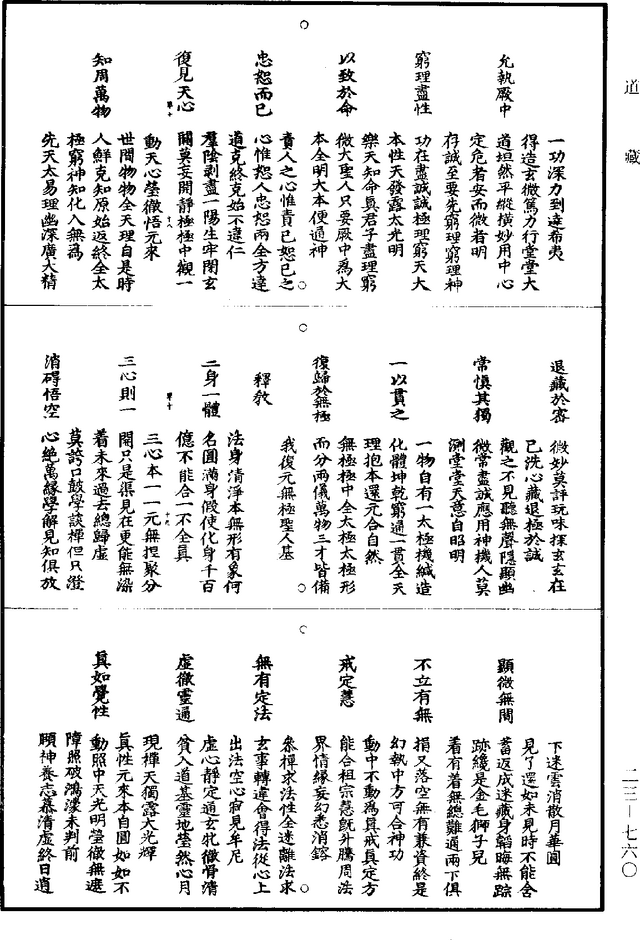 道藏
一功深力到達希夷
允執厥中
得造玄微篤力行堂堂大
道坦然平縱橫妙用中心
定危者安而微者明
窮理盡性
存誠至要先窮理窮理神
功在盡誠誠極理窮天大
本性天發露太光明
以致於命
樂天知命真君子盡理窮
微大聖人只要厥中爲大
本全明大本便通神
忠恕而已
責人之心惟責已恕已之
心惟恕人忠恕兩全方達
道克終克始不違仁
復見天心
羣陰剥盡一陽生牢閉玄
關莫妄開靜極極中觀一
動天心瑩徹悟元來
知周萬物
世間物物全天理自是時
人鮮克知原始返終全太
極窮神知化入無爲
先天太易理幽深廣大精
微妙莫評玩味探玄玄在
已洗心藏退極於誠
退藏於密
觀之不見聽無聲隱顯幽
微常盡誠應用神機人莫
測堂堂天意自昭明
常慎其獨
一物自有一太極機緘造
化體坤乾窮通一貫全天
理抱本還元合自然
一以貫之
無極極中全太極太極形
而分兩儀萬物三才皆備
我復元無極聖人基
復歸於無極
釋教
二身一體
法身清淨本無形有象何
名圓滿身假使化身千百
億不能合一不全真
三心則一
三心本一一元無捏聚分
開只是渠見在更能無染
着未來過去總歸虛
消礙悟空
莫誇口鼓學談禪但只澄
心絶萬緣學解見知俱放
下迷雲消散月華圓
顯微無間
見了還如未見時不能舍
蓄返成迷藏身韜晦無踪
跡纔是金毛獅子兒
不立有無
着有着無總難通兩下俱
捐又落空無有兼資終是
幻執中方可合神功
戒定慧
動中不動爲真戒真定方
能合祖宗慧旣升騰周法
界情緣妄幻悉消鎔
無有定法
叅禪求法性全迷離法求
玄事轉違會得法從心上
出法空心寂見牟尼
虛徹靈通
虛心靜定通玄牝徹骨清
貧入道基靈地瑩然心月
現禪天獨露大光輝
真如覺性
真性元來本自圓如如不
動照中天光明瑩徹無遮
障照破鴻濛未判前
頤神養志慕清虛終日逍
二三—七六〇